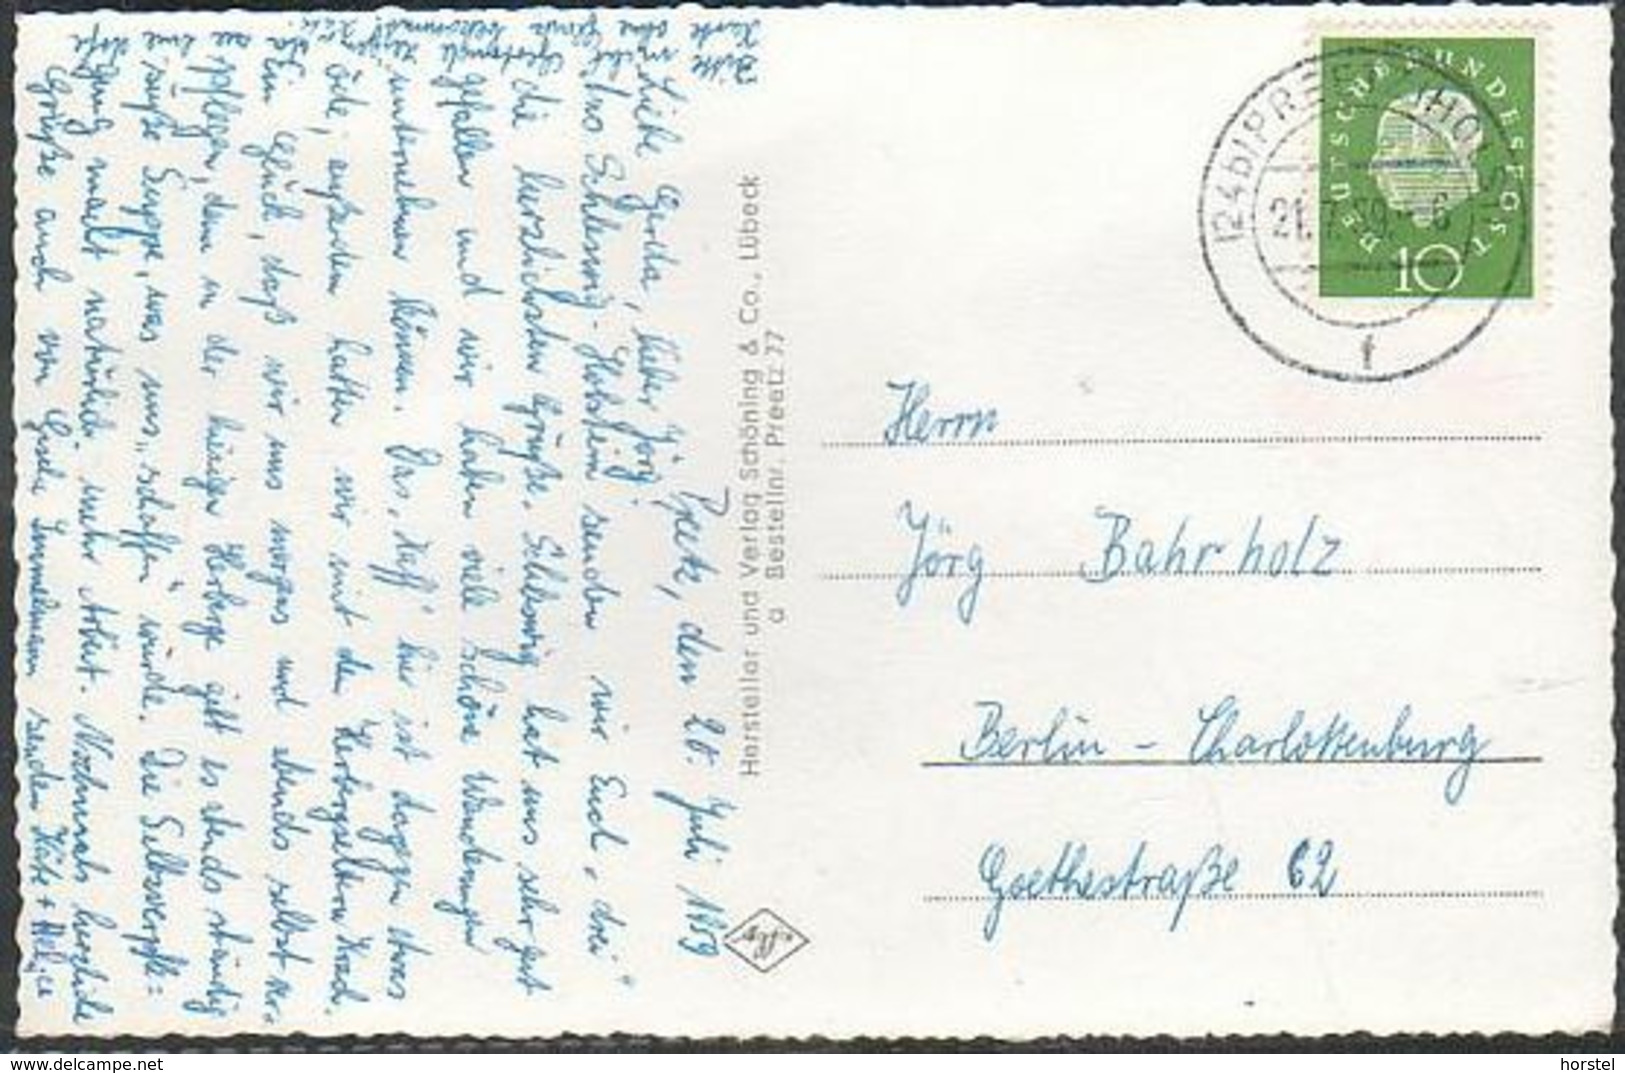 Preetz, den 20. Juli 1959
Liebe Gerda, lieber Jörg!
Aus Schleswig-Holstein senden wir Euch „drei“
die herzlichsten Grüße. Schleswig hat uns sehr gut
gefallen und wir haben viele schöne Wanderungen
unternehmen können. Das „Kaff“ hier ist dagegen etwas
öde, außerdem hatten wir mit den Herbergseltern Krach.
Ein Glück, daß wir uns morgens und abends selbst ver-
pflegen, denn in der hiesigen Herberge gibt es abends ständig
süße Suppe, was uns „schaffen“ würde. Die Selbstverpfle=
gung macht natürlich mehr Arbeit. Nochmals herzliche
Grüße auch von Gisela Immelmann senden Käte +
Bitte nicht
Karte ohne
Hersteller und Verlag Schöning & Co., Lübeck
a Bestellnr. Preetz 77
DEUTSCHE BUNDESPOST
10
(24b) PREETZ (HOLST)
21.7.59.-6
f
Herrn
Jörg Bahrholz
Berlin - Charlottenburg
Goethestraße 62
www.delcampe.net
horstel